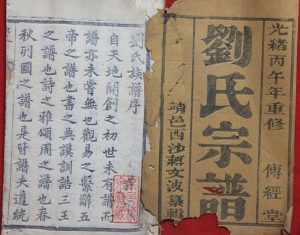 光緒丙午年重修
傳經堂
劉氏宗譜
靖邑西沙蔣文波纂輯
劉氏族譜序
自天地開創之初世未有譜而
譜亦未嘗無也觀易之繫辭五
帝之譜也書之典謨訓誥三王
之譜也詩之雅頌周之譜也春
秋列國之譜也是皆譜大道統